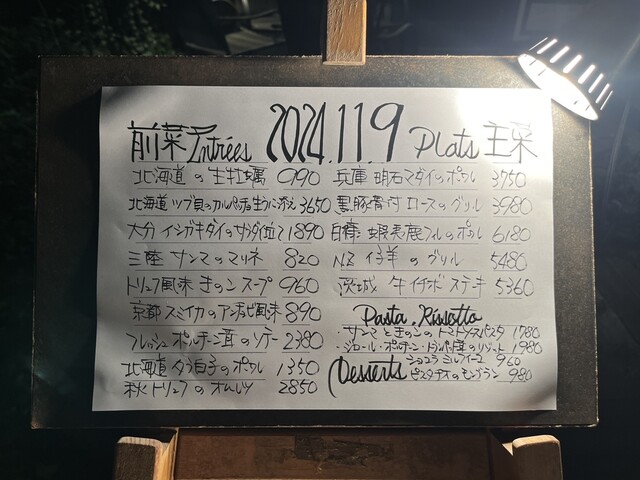 前菜 Entrées 2024.11.9 Plats 主菜
北海道の生牡蠣 990
北海道ツブ貝のカルパッチョ生うに添え 3650
大分イシガキダイのサラダ仕立て 1890
三陸サンマのマリネ 820
トリュフ風味きのこスープ 960
京都スミイカのアンチョビ風味 890
フレッシュポルチーニ茸のソテー 2380
北海道タラ白子のポワレ 1350
秋トリュフのオムレツ 2850
兵庫明石マダイのポワレ 3750
黒豚骨付ロースのグリル 3980
蝦夷鹿フィレのポワレ 6180
NZ仔羊のグリル 5480
茨城牛イチボステーキ 5360
Pasta, Rissotto
・サンマときのこのトマトソースパスタ 1780
・ジロール・ポルチーニ・トランペット茸のリゾット 1980
Desserts
ショコラミルフィーユ 960
ピスタチオのモンブラン 980